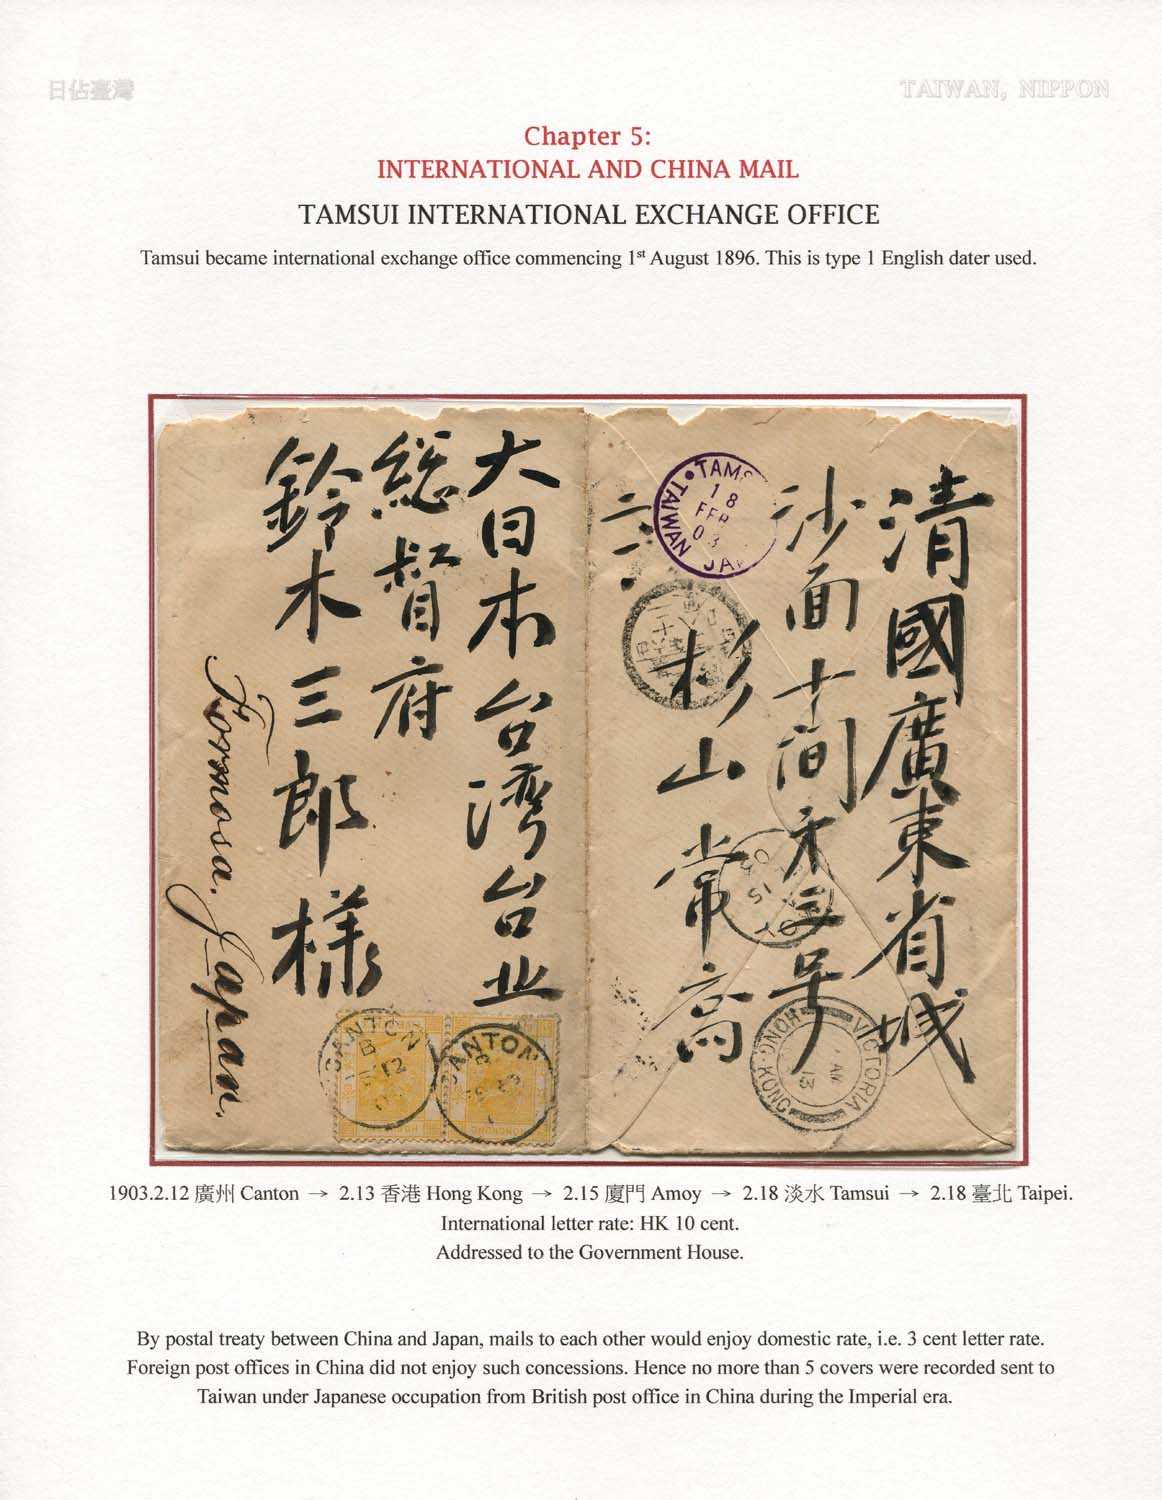 日佔臺灣
TAIWAN, NIPPON
Chapter 5:
INTERNATIONAL AND CHINA MAIL
TAMSUI INTERNATIONAL EXCHANGE OFFICE
Tamsui became international exchange office commencing 1st August 1896. This is type 1 English dater used.
大日本台湾台北
総督府
鈴木三郎様
Formosa. Japan.
CANTON
B
12
CANTON
HONGKONG
清國廣東省城
沙面十間
号
杉山常高
TAMS
18
FEB
03
TAIWAN JA
15
03
VICTORIA
HONG-KONG
13
1903.2.12 廣州 Canton → 2.13 香港 Hong Kong → 2.15 廈門 Amoy → 2.18 淡水 Tamsui → 2.18 臺北 Taipei.
International letter rate: HK 10 cent.
Addressed to the Government House.
By postal treaty between China and Japan, mails to each other would enjoy domestic rate, i.e. 3 cent letter rate.
Foreign post offices in China did not enjoy such concessions. Hence no more than 5 covers were recorded sent to
Taiwan under Japanese occupation from British post office in China during the Imperial era.